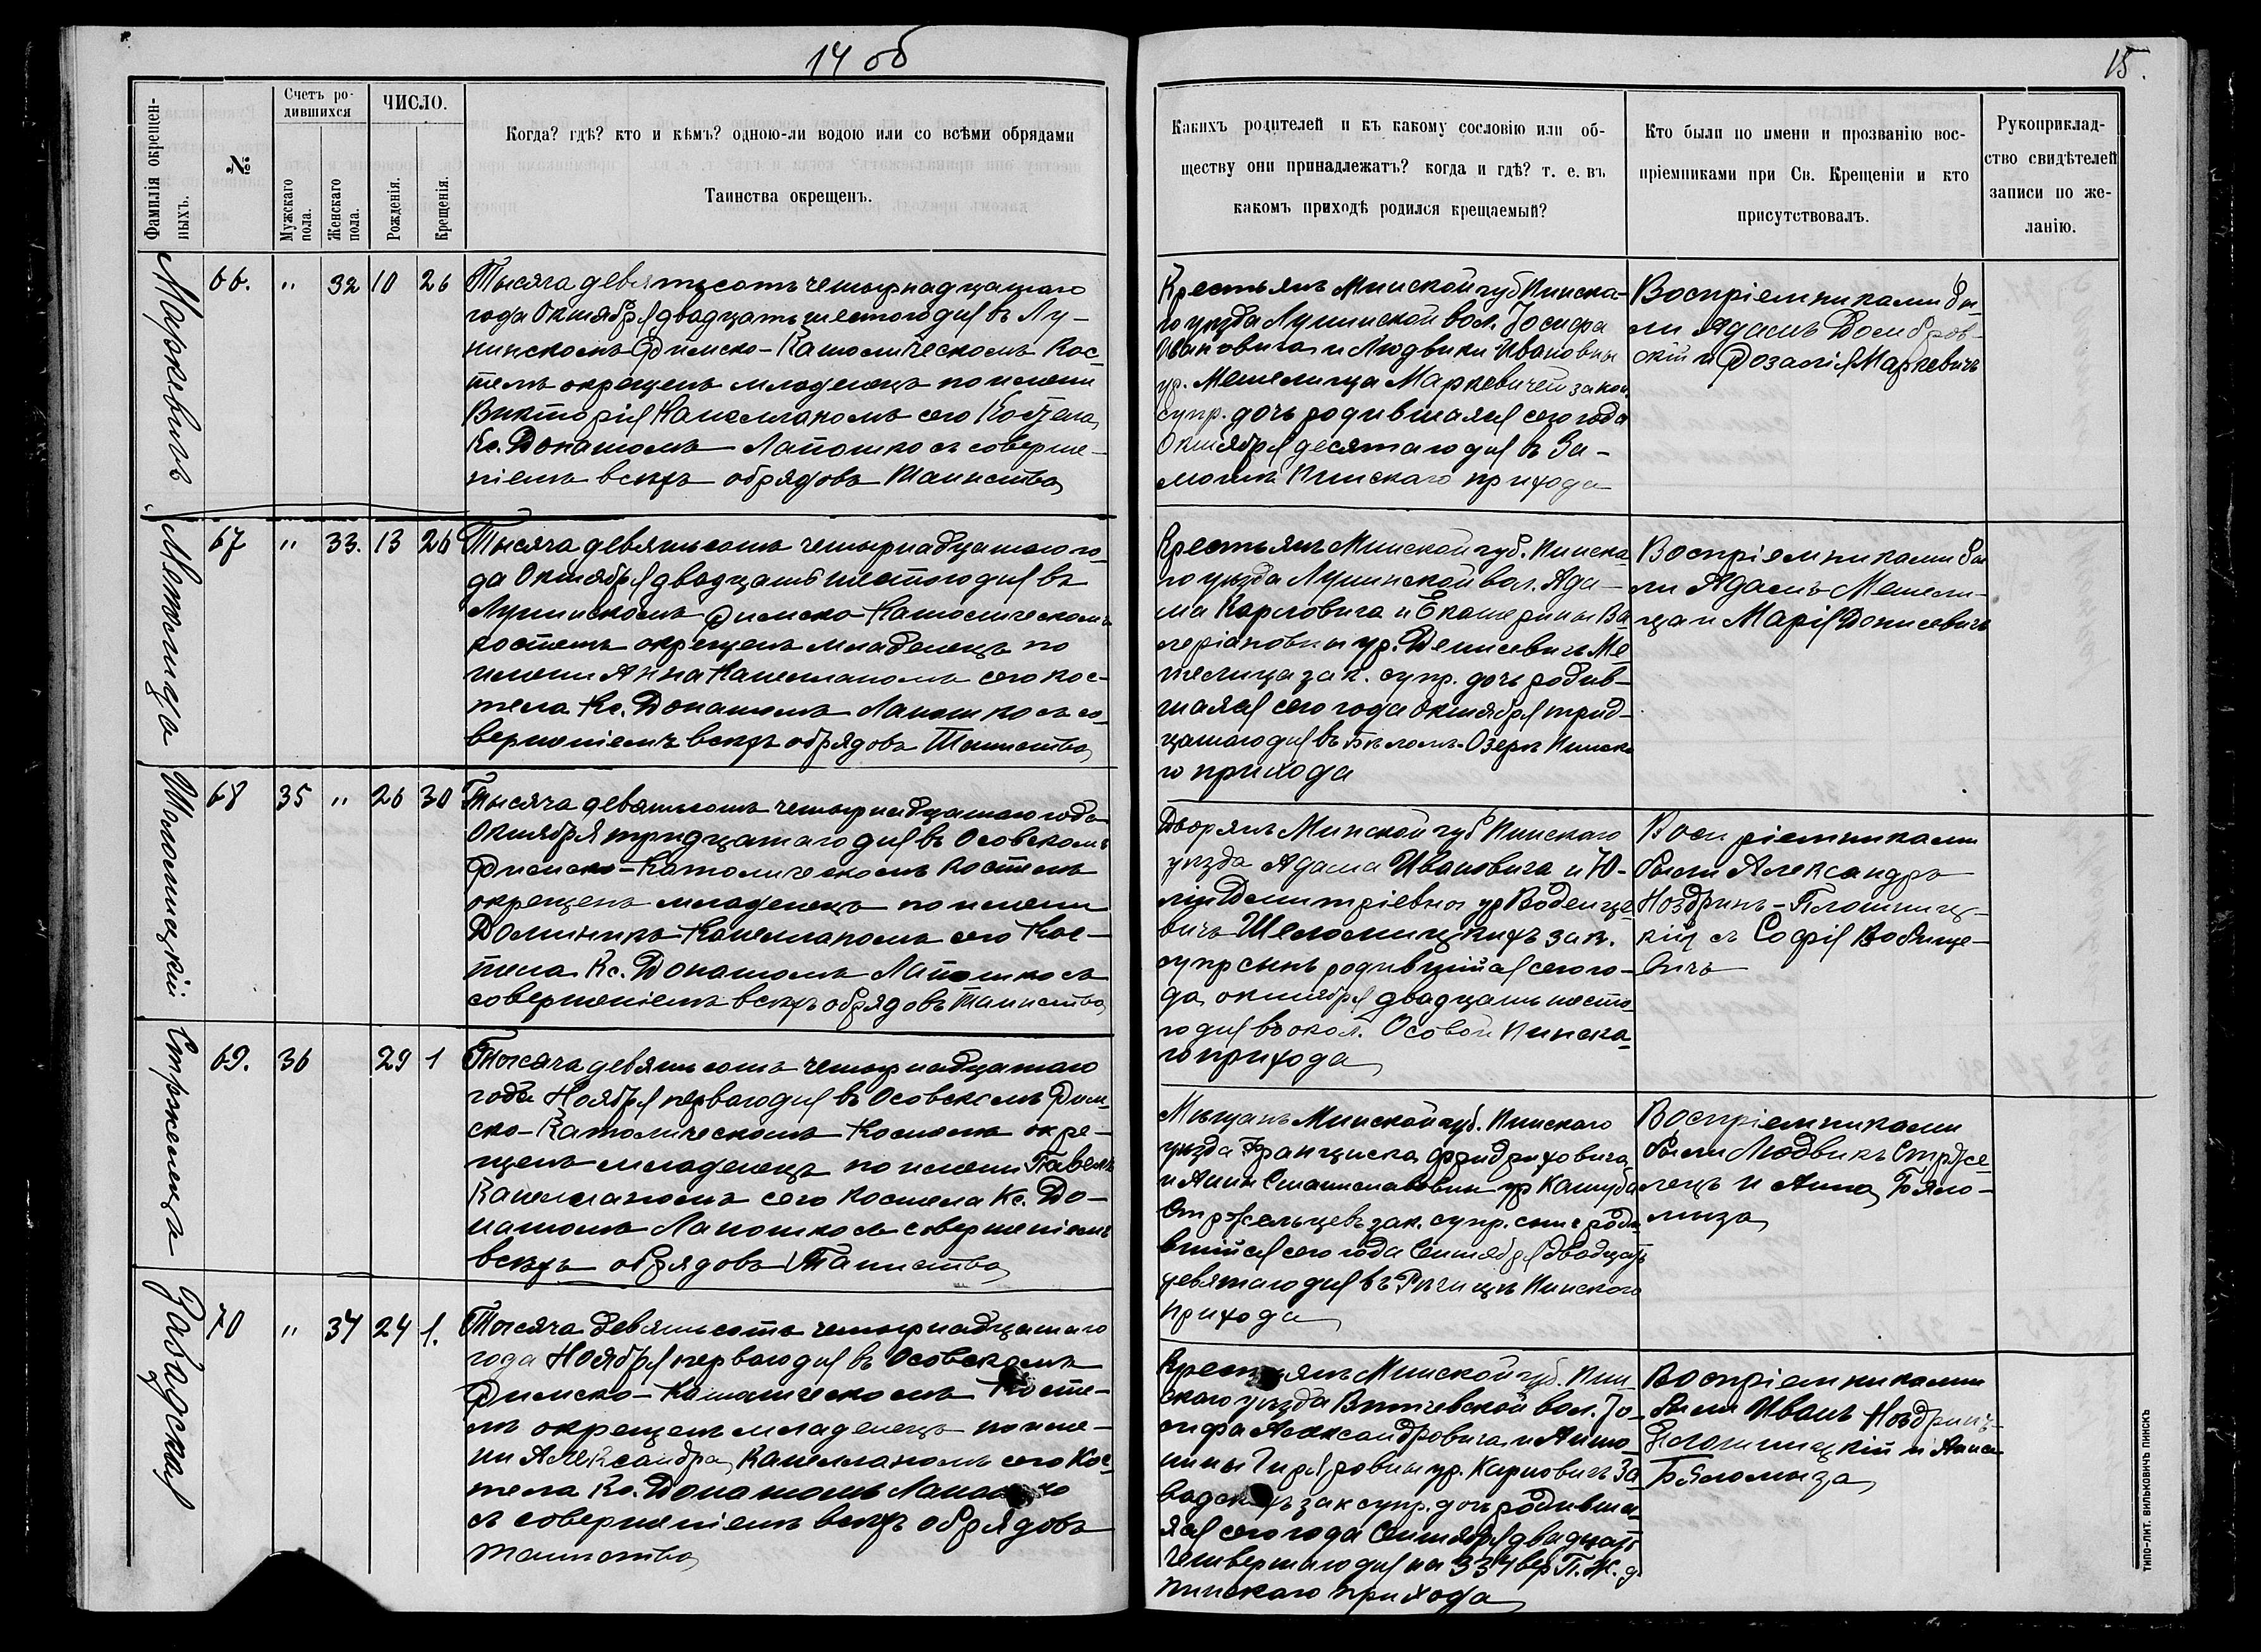 14 об
15.
Фамилія окрещен-
ныхъ.
№
Счетъ ро-
дившихся
Мужскаго
пола.
Женскаго
пола.
ЧИСЛО.
Рожденія.
Крещенія.
Когда? гдѣ? кто и кѣмъ? одною-ли водою или со всѣми обрядами
Таинства окрещенъ.
Какихъ родителей и къ какому сословію или об-
ществу они принадлежатъ? когда и гдѣ? т. е. въ
какомъ приходѣ родился крещаемый?
Кто были по имени и прозванію вос-
пріемниками при Св. Крещеніи и кто
присутствовалъ.
Рукоприклад-
ство свидѣтелей
записи по же-
ланію.
Маркевичъ
66. " 32 10 26
Тысяча девятьсотъ четырнадцатаго
года Октября двадцать шестого дня въ Лу-
нинскомъ Римско-Католическомъ Кос-
телѣ окрещенъ младенецъ по имени
Викторія Капелланомъ сего Костела
Кс. Донатомъ Лапошко съ соверше-
ніемъ всѣхъ обрядовъ Таинства
Крестьянъ Минской губ Пинска-
го уѣзда Лунинской вол. Іосифа
Ивановича и Людвики Ивановны
ур. Метелица Маркевичей закон.
супр. дочь родившаяся сего года
Октября десятаго дня въ За-
Пинскаго прихода
Воспріемниками бы-
ли Адамъ Домбров-
скій и Розалія Маркевичъ
Метелица
67 " 33. 13 26
Тысяча девятьсотъ четырнадцатаго го-
да Октября двадцать шестого дня въ
Лунинскомъ Римско Католическомъ
костелѣ окрещенъ младенецъ по
имени Анна Капелланомъ сего кос-
тела Кс. Донатомъ Лапошко съ со-
вершеніемъ всѣхъ обрядовъ Таинства
Крестьянъ Минской губ. Пинска-
го уѣзда Лунинской вол. Ада-
ма Карловича и Екатерины Ва-
леріановны ур. Денисевичъ Ме-
телица зак. супр. дочь родив-
шаяся сего года Октября трид-
цатаго дня въ Бѣломъ-Озерѣ Пинска
го прихода
Воспріемниками бы
ли Адамъ Метели-
ца и Марія Денисевичъ
Шеломицкій
68 35 " 26 30
Тысяча девятьсотъ четырнадцатаго года
Октября тридцатаго дня въ Осовскомъ
Римско-Католическомъ Костелѣ
окрещенъ младенецъ по имени
Доминикъ Капелланомъ сего Кос-
тела Кс. Донатомъ Лапошко съ
совершеніемъ всѣхъ обрядовъ Таинства
Дворянъ Минской губ Пинскаго
уѣзда Адама Ивановича и Ю-
ліи Димитріевны ур
вичъ Шеломицкихъ зак.
супр сынъ родившійся сего го-
да октября двадцать шесто
го дня въ окол. Осовой Пинска-
го прихода
Воспріемниками
были Александръ
Ноздринъ-Плотниц-
кій съ Софія
вичъ
Стржелецъ
69. 36 29 1
Тысяча девятьсотъ четырнадцатаго
года Ноября перваго дня въ Осовскомъ Рим-
ско-Католическомъ Костелѣ окре-
щенъ младенецъ по имени Павелъ
Капелланомъ сего костела Кс. До-
натомъ Лапошко съ совершеніемъ
всѣхъ обрядовъ Таинства
Мѣщанъ Минской губ. Пинскаго
уѣзда Франциска Фридриховича
и Анны Станиславовны ур Кашуба
Стржельцевъ зак. супр. сынъ роди
вшійся сего года Сентября двадцать
девятаго дня въ Рѣчицѣ Пинскаго
прихода
Воспріемниками
были Людвикъ Стрже-
лецъ и Анна Бяло-
мыза
Завадская
70 " 37 24 1.
Тысяча девятьсотъ четырнадцатаго
года Ноября перваго дня въ Осовскомъ
Римско-Католическомъ Косте-
лѣ окрещенъ младенецъ по име-
ни Александра Капелланомъ сего Кос-
тела Кс. Донатомъ Лапошко
съ совершеніемъ всѣхъ обрядовъ
таинства
Крестьянъ Минской губ. Пин-
скаго уѣзда Вичевской вол. Іо-
сифа Александровича и Анто-
нины ур. Карповичъ За
вадскихъ зак супр. дочь родивша-
яся сего года Сентября двадцать
четвертаго дня на 334 вер П. Ж. д
Пинскаго прихода
Воспріемниками
были Иванъ Ноздринъ-
Плотницкій и Анна
Бяломыза
ТИПО-ЛИТ. ВИЛЬКОВИЧЪ ПИНСКЪ